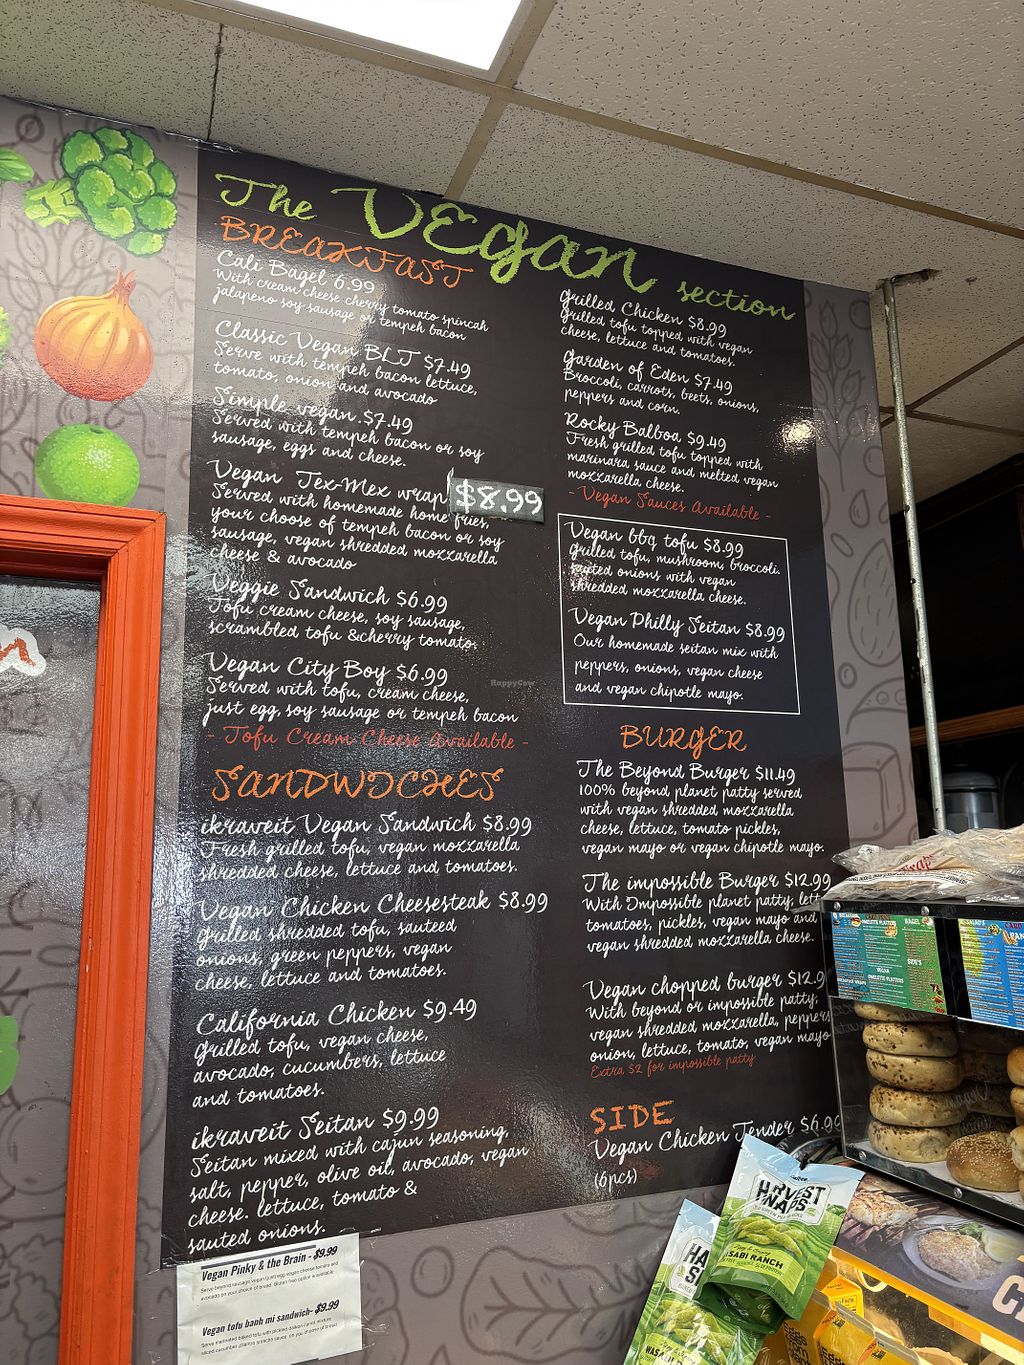 The VEgan section
BREAKFAST
Cali Bagel 6.99
With cream cheese cherry tomato spincah
jalapeno soy sausage or tempeh bacon
Classic Vegan BLT $7.49
Serve with tempeh bacon lettuce,
tomato, onion and avocado
Simple vegan $7.49
Served with tempeh bacon or soy
sausage, eggs and cheese.
Vegan Tex-Mex wrap $8.99
Served with homemade home fries,
your choose of tempeh bacon or soy
sausage, vegan shredded mozzarella
cheese & avocado
Veggie Sandwich $6.99
Tofu cream cheese, soy sausage,
scrambled tofu &cherry tomato.
Vegan City Boy $6.99
Served with tofu, cream cheese,
just egg, soy sausage or tempeh bacon
- Tofu Cream Cheese Available -
SANDWICHES
ikraveit Vegan Sandwich $8.99
Fresh grilled tofu, vegan mozzarella
shredded cheese, lettuce and tomatoes.
Vegan Chicken Cheesesteak $8.99
Grilled shredded tofu, sauteed
onions, green peppers, vegan
cheese, lettuce and tomatoes.
California Chicken $9.49
Grilled tofu, vegan cheese,
avocado, cucumbers, lettuce
and tomatoes.
ikraveit Seitan $9.99
Seitan mixed with cajun seasoning,
salt, pepper, olive oil, avocado, vegan
cheese. lettuce, tomato &
sauted onions.
Grilled Chicken $8.99
Grilled tofu topped with vegan
cheese, lettuce and tomatoes.
Garden of Eden $7.49
Broccoli, carrots, beets, onions,
peppers and corn.
Rocky Balboa $9.49
Fresh grilled tofu topped with
marinara sauce and melted vegan
mozzarella cheese.
- Vegan Sauces Available -
Vegan bbq tofu $8.99
Grilled tofu, mushroom, broccoli.
sauted onions with vegan
shredded mozzarella cheese.
Vegan Philly Seitan $8.99
Our homemade seitan mix with
peppers, onions, vegan cheese
and vegan chipotle mayo.
BURGER
The Beyond Burger $11.49
100% beyond planet patty served
with vegan shredded mozzarella
cheese, lettuce, tomato pickles,
vegan mayo or vegan chipotle mayo.
The impossible Burger $12.99
With Impossible planet patty, lett
tomatoes, pickles, vegan mayo and
vegan shredded mozzarella cheese.
Vegan chopped burger $12.9
With beyond or impossible patty,
vegan shredded mozzarella, peppers
onion, lettuce, tomato, vegan mayo
Extra $2 for impossible patty
SIDE
Vegan Chicken Tender $6.99
(6pcs)
Vegan Pinky & the Brain - $9.99
Serve beyond sausage vegan (just) egg vegan cheese tomato and
avocado on your choice of bread. Gluten free option is available
Vegan tofu banh mi sandwich- $9.99
HappyCow
HARVEST
SNAPS
WASABI RANCH